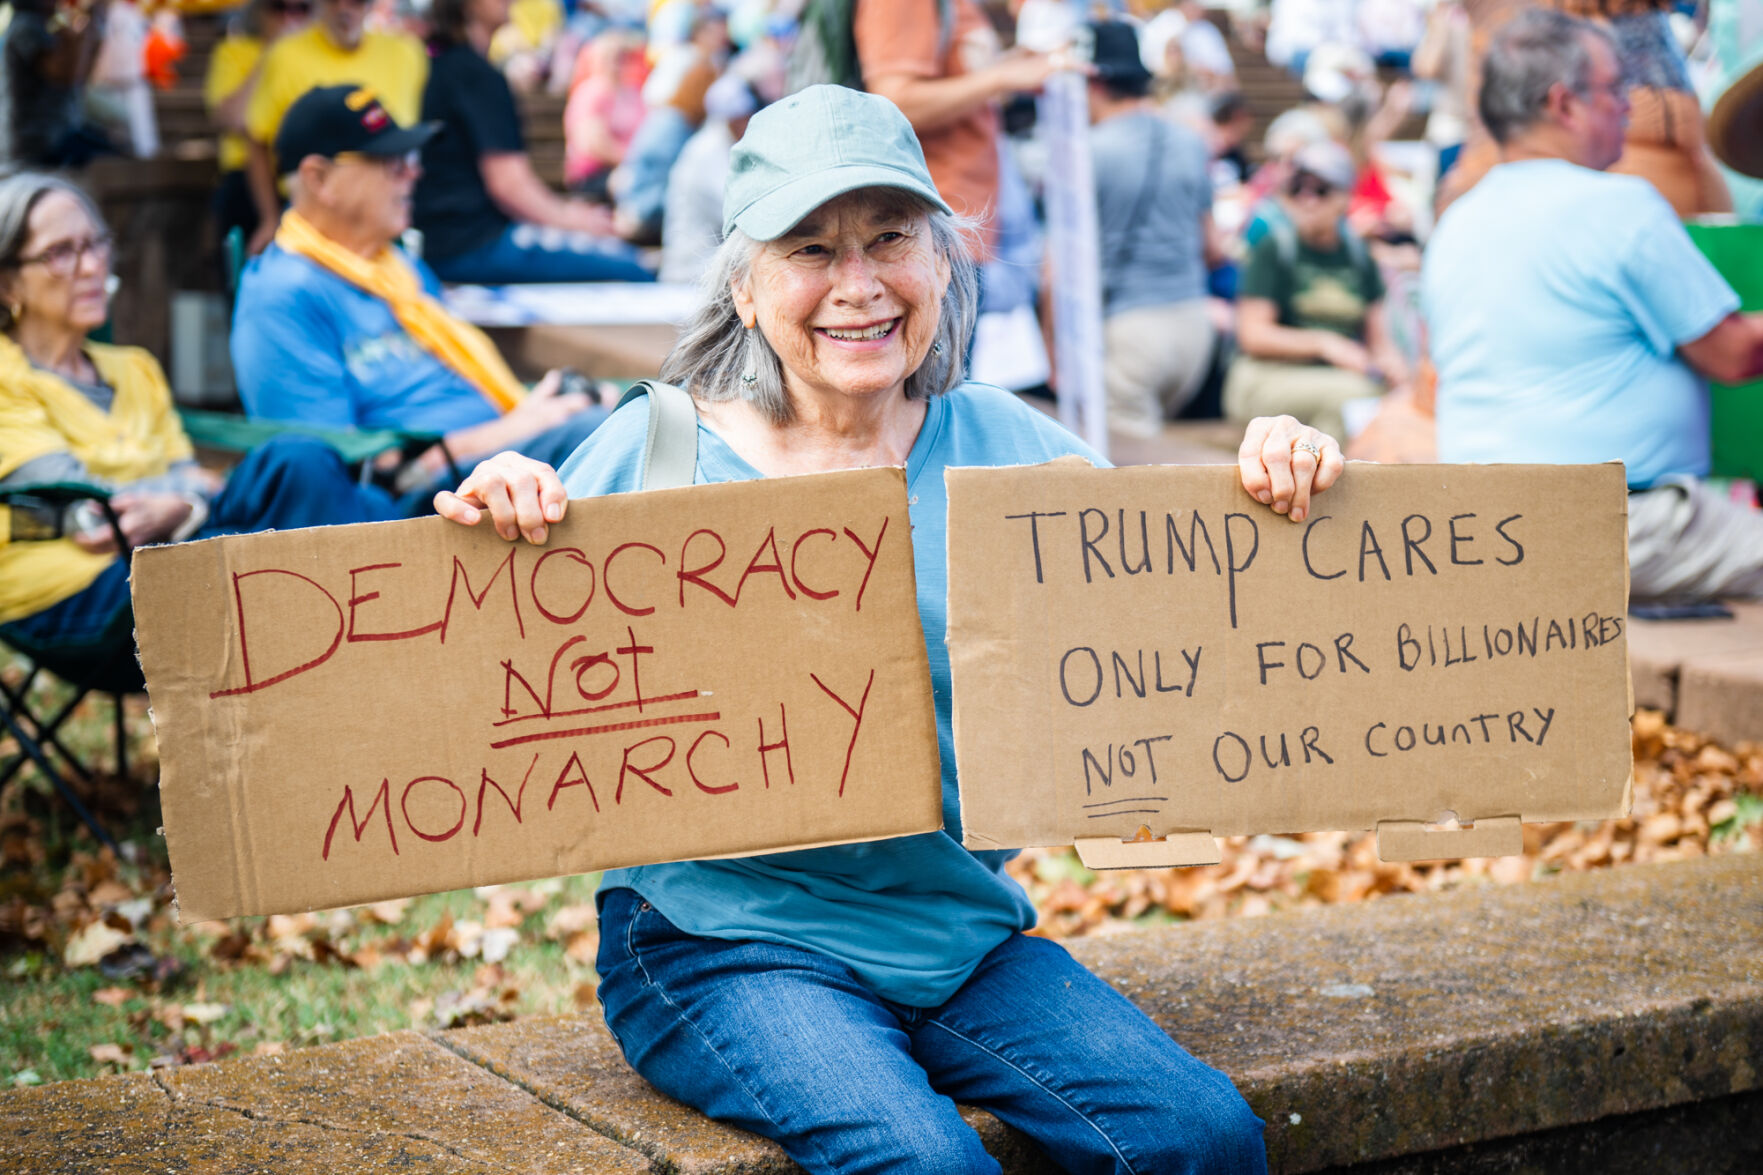 DEMOCRACY
NOT
MONARCHY
TRUMP CARES
ONLY FOR BILLIONAIRES
NOT OUR COUNTRY